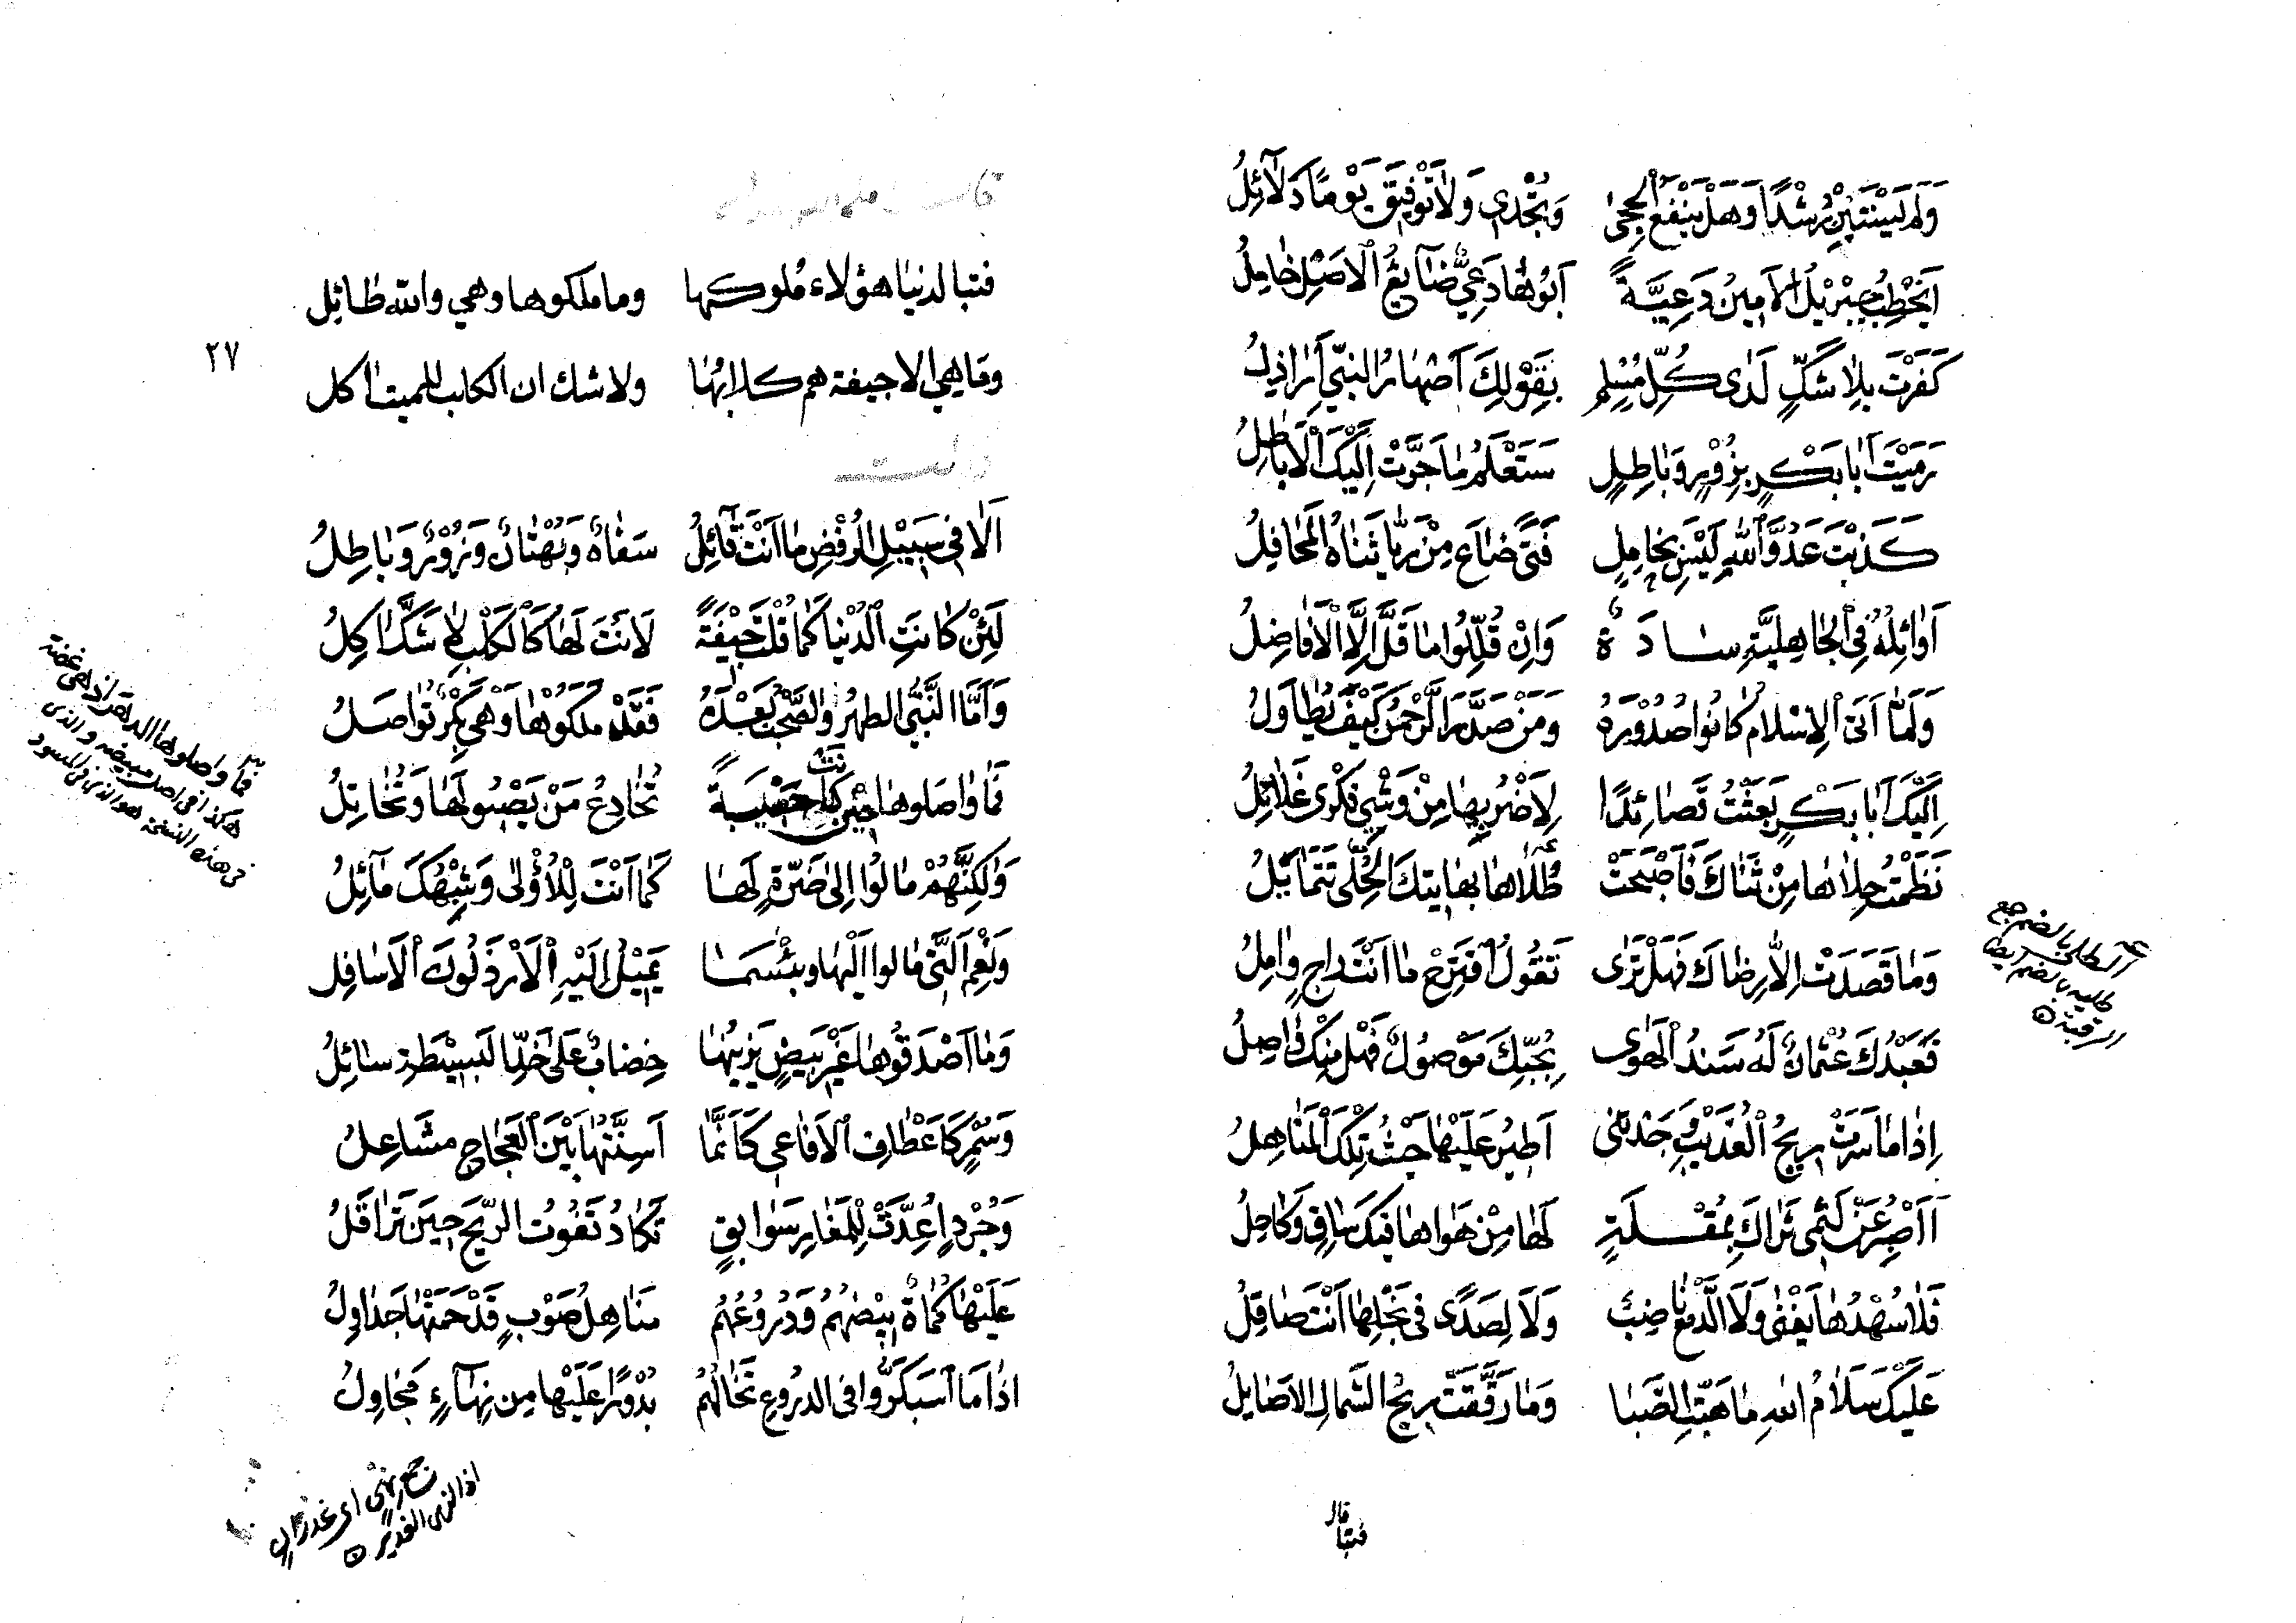 وَلَمْ يَسْتَبِنْ رُشْدًا وَهَلْ يَنْفَعُ الْحِجَى وَيُجْدِي وَلَا تَوْفِيقَ يَوْمًا دَلَائِلُ
اَيَخْطِبُ جِبْرِيْلُ الْاَمِينُ دَعِيَّةً اَبُوهَا دَعِيٌّ ضَايِعُ الْاَصْلِ خَامِلُ
كَفَرْتَ بِلَا شَكٍّ لَدَى كُلِّ مُسْلِمٍ بِقَوْلِكَ اَصْهَارُ النَّبِيِّ اَرَاذِلُ
رَمَيْتَ اَبَا بَكْرٍ بِزُوْرٍ وَبَاطِلٍ سَتَعْلَمُ مَا جَرَّتْ اِلَيْكَ الْاَبَاطِلُ
كَذَبْتَ عَدُوَّ اللهِ لَيْسَ بِخَامِلٍ فَتًى ضَاعَ مِنْ رَيَّا ثَنَاهُ الْمَحَافِلُ
اَوَائِلُهُ فِي الْجَاهِلِيَّةِ سَادَةٌ وَاِنْ قُلِّلُوا مَا قَلَّ اِلَّا الْاَفَاضِلُ
وَلَمَّا اَتَى الْاِسْلَامُ كَانُوا صُدُوْرَهُ وَمَنْ صَدَّرَ الرَّحْمٰنُ كَيْفَ يُطَاوَلُ
اِلَيْكَ اَبَا بَكْرٍ بَعَثْتُ قَصَائِدًا لِاَضْرُبِهَا مِنْ وَشْيِ فِكْرِى غَلَائِلُ
نَظَمْتُ حِلَاهَا مِنْ ثَنَاكَ فَاَصْبَحَتْ طُلَاهَا بِهَاتِيكَ الْحُلَى تَتَمَايَلُ
وَمَا قَصَدَتْ اِلَّا رِضَاكَ فَهَلْ تَرَى تَقُولُ اقْتَرِحْ مَا اَنْتَ رَاجٍ وَامِلُ
فَعَبْدُكَ عُثْمَانٌ لَهُ سَنَدُ الْهَوَى بِحُبِّكَ مَوْصُولٌ فَهَلْ مِنْكَ وَاصِلُ
اِذَا مَا سَرَتْ رِيحُ الْعُذَيْبِ وَجَدْتَنِى اَطِيرُ عَلَيْهَا حَيْثُ تِلْكَ الْمَنَاهِلُ
ااَصْبِرُ عَنْ لَثْمِي ثَرَاكَ بِمُقْلَةٍ لَهَا مِنْ هَوَاهَا فِيكَ سَافٍ وَكَاحِلُ
فَلَا سُهْدُهَا يَفْنَى وَلَا الدَّمْعُ نَاضِبٌ وَلَا لِصَدًى فِي نَجْلِهَا اَنْتَ صَاقِلُ
عَلَيْكَ سَلَامُ اللهِ مَا هَبَّتِ الصَّبَا وَمَا رَقَّقَتْ رِيحُ الشَّمَالِ الْاَصَايِلُ
آلطلى بالضم جمع
طليه بالضم ايضا
الرقبة
فتبا
٢٧
فتبا لدنيا هؤلاء ملوكها وما ملكوها وهي والله طائل
وما هي الا جيفة هم كلابها ولا شك ان الكلب للميت اكل
اَلَا فِي سَبِيْلِ الرَّفْضِ مَا اَنْتَ قَائِلُ سَفَاهٌ وَبُهْتَانٌ وَزُوْرٌ وَبَاطِلُ
لَئِنْ كَانَتِ الدُّنْيَا كَمَا قُلْتَ جِيْفَةً لَاَنْتَ لَهَا كَالْكَلْبِ لَا شَكَّ اٰكِلُ
وَاَمَّا النَّبِيُّ الطُّهْرُ وَالصَّحْبُ بَعْدَهُ فَقَدْ مَلَكُوْهَا وَهْيَ بِكْرٌ تُوَاصَلُ
فَمَا وَاصَلُوهَا حِيْنَ كَانَتْ خَصِيْبَةً تُخَادِعُ مَنْ يَصْبُو لَهَا وَتُخَاتِلُ
وَلٰكِنَّهُمْ مَالُوا اِلَى ضَرَّةٍ لَهَا كَمَا اَنْتَ لِلْاُوْلَى وَشِبْهُكَ مَائِلُ
وَنِعْمَ الَّتِي مَالُوا اِلَيْهَا وَبِئْسَمَا يَمِيْلُ اِلَيْهِ الْاَرْذَلُوْنَ الْاَسَافِلُ
وَمَا اَصْدَقُوهَا غَيْرَ بِيْضٍ يَزِينُهَا خِضَابٌ عَلَى خَدِّ الْبَسِيْطَةِ سَائِلُ
وَسُمْرٍ كَاَعْطَافِ الْاَفَاعِى كَاَنَّمَا اَسِنَّتُهَا بَيْنَ الْعَجَاجِ مَشَاعِلُ
وَجُرْدٍ اُعِدَّتْ لِلْمَغَارِ سَوَابِقٍ تَكَادُ تَفُوتُ الرِّيْحَ حِيْنَ تَرَاقَلُ
عَلَيْهَا كُمَاةٌ بَيْضُهُمْ وَدُرُوعُهُمْ مَنَاهِلُ صَوْبٍ قَدْ حَمَتْهَا جَدَاوِلُ
اذَا مَا اسْبَكَرُّوا فِى الدُّرُوعِ تَخَالُهُمْ بُدُوْرًا عَلَيْهَا مِنْ نِهَاءٍ مَجَاوِلُ
فما واصلوها الدهر اذ هي غضة
هكذا في اصل مبيضه والذي
في هذه النسخة هو الذي في المسود
جمع نهي اي غدران
اذ النهى الغدير